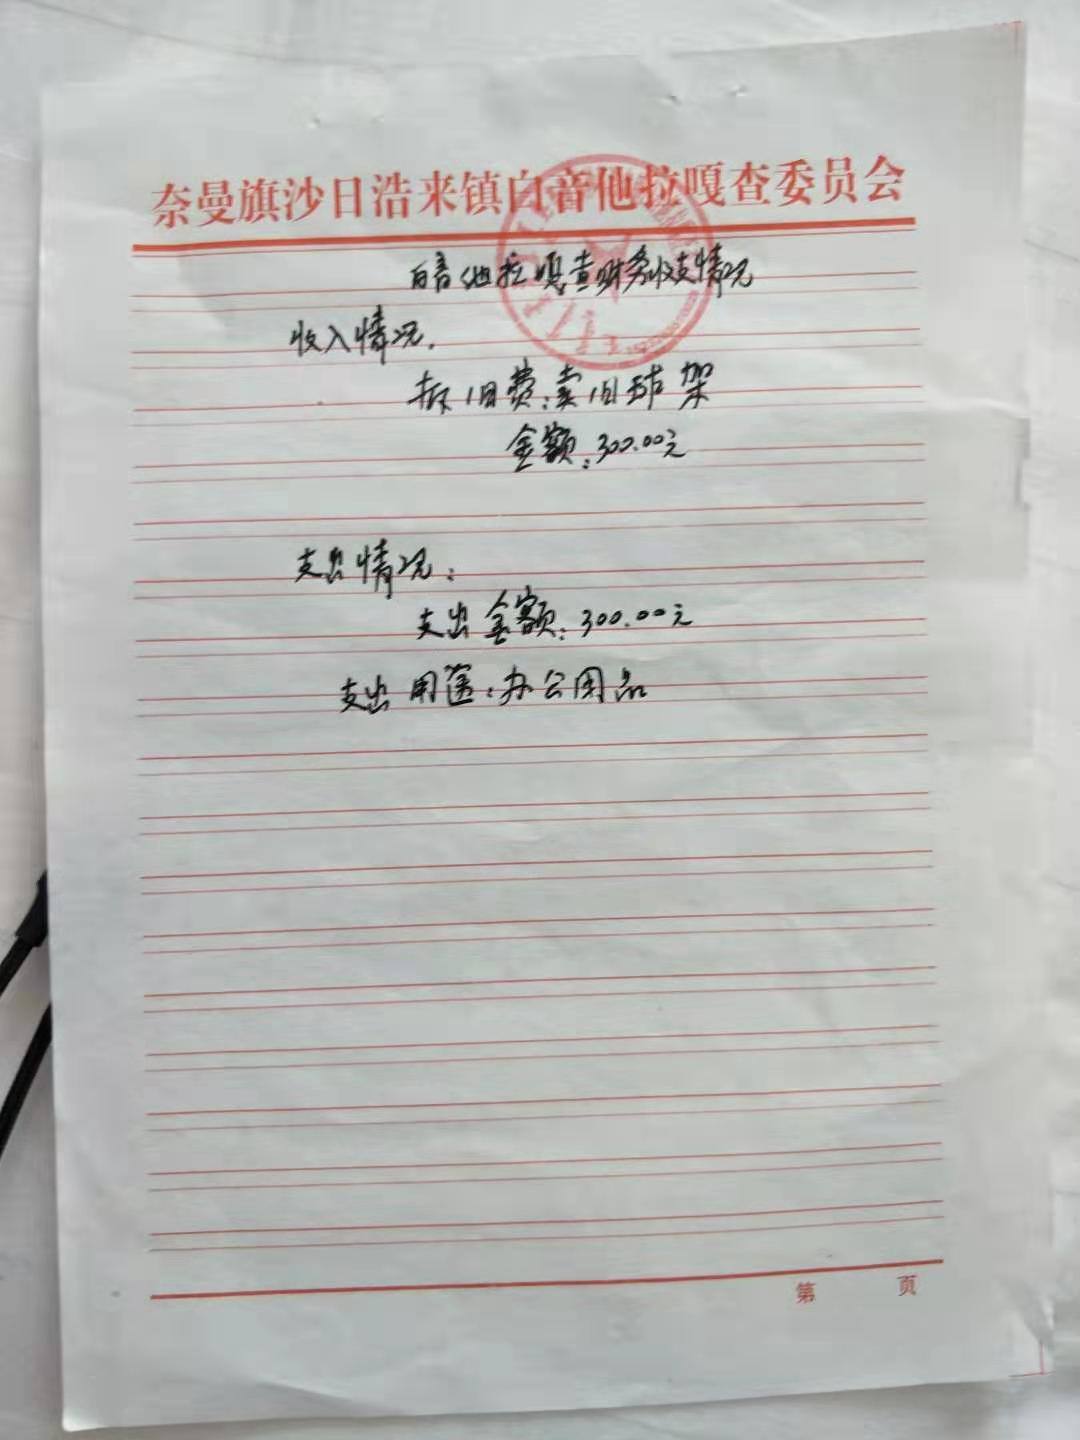 奈曼旗沙日浩来镇白音他拉嘎查委员会
白音他拉嘎查财务收支情况
收入情况.
拆旧费:卖旧球架
金额:300.00元
支出情况:
支出金额:300.00元
支出用途:办公用品
第 页